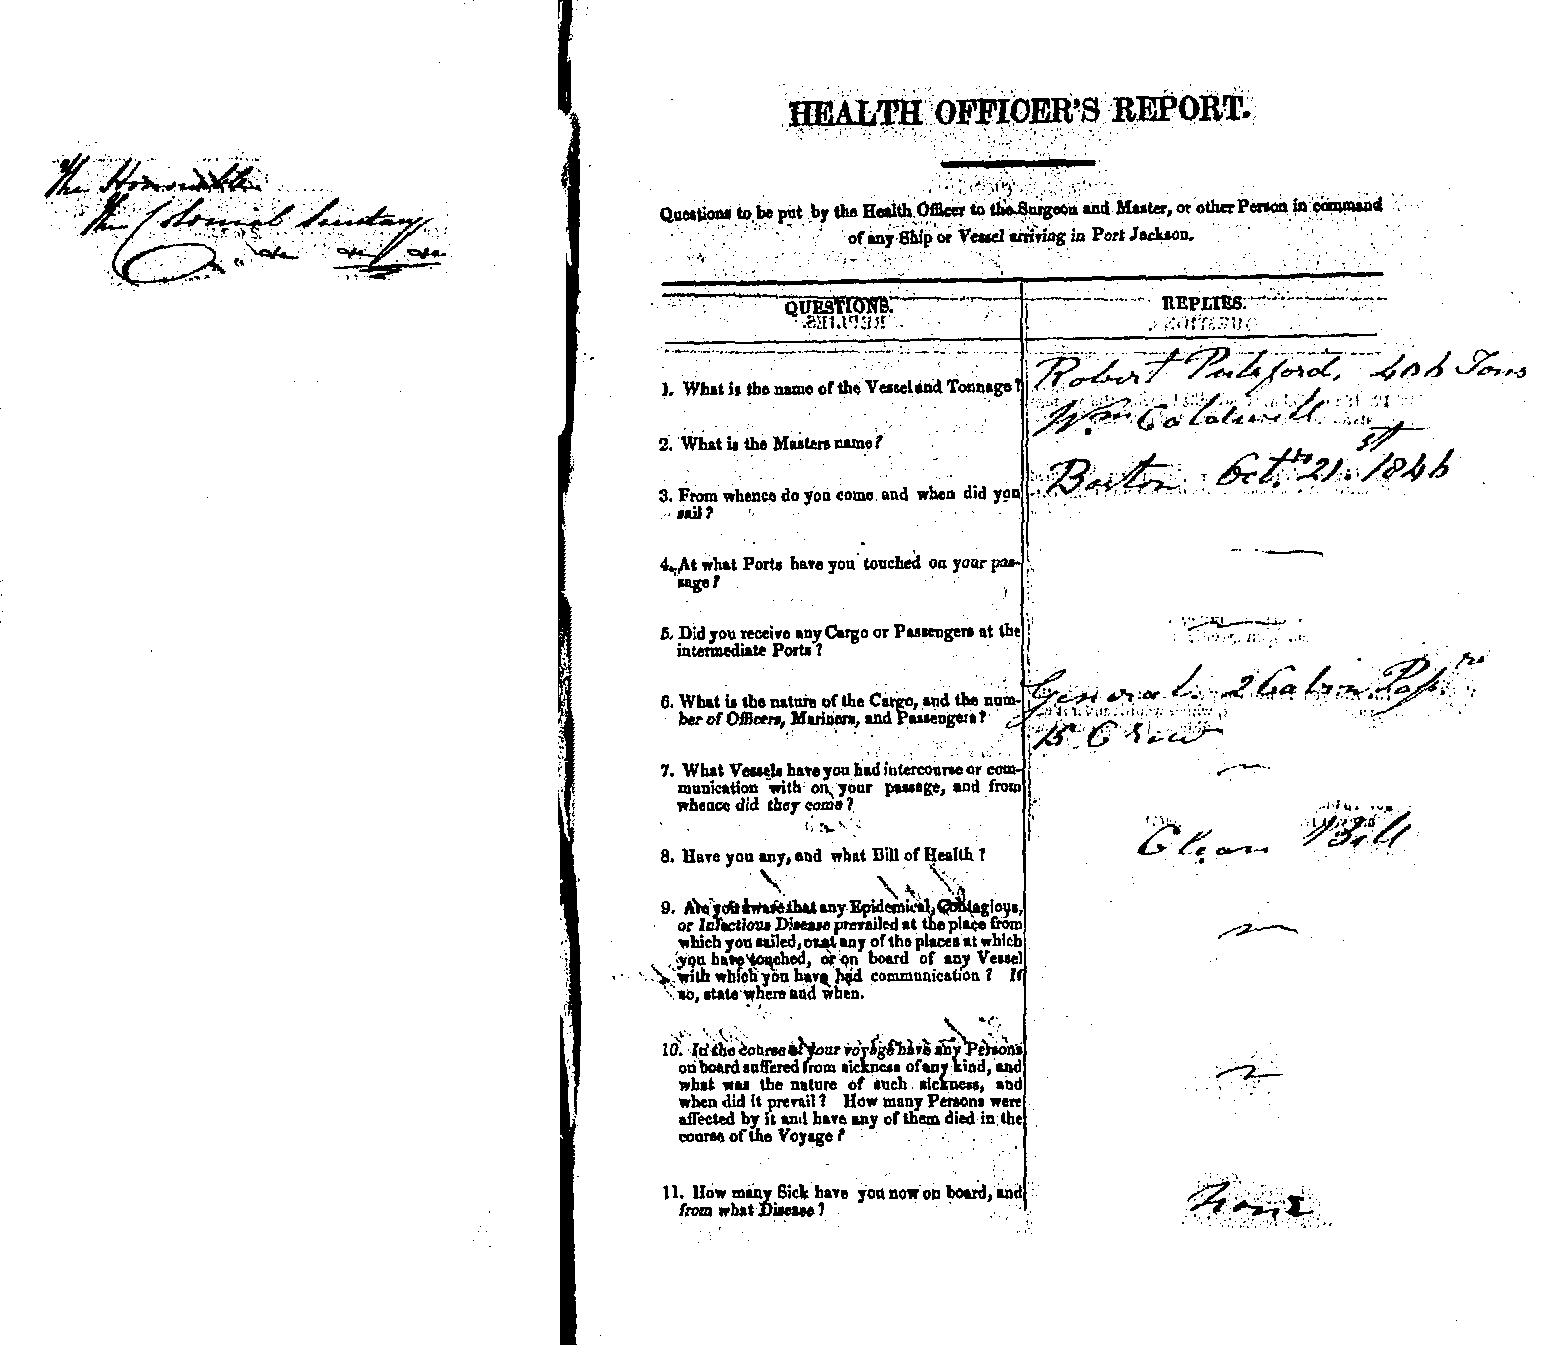 The Honourable
The Colonial Secretary
&c &c &c
HEALTH OFFICER'S REPORT.
Questions to be put by the Health Officer to the Surgeon and Master, or other Person in command
of any Ship or Vessel arriving in Port Jackson.
QUESTIONS.
REPLIES.
1. What is the name of the Vessel and Tonnage?
Robert Pulsford. 406 Tons
2. What is the Masters name?
Wm Caldwell
3. From whence do you come and when did you
sail?
Boston Octr. 21.st 1846
4. At what Ports have you touched on your pas-
sage?
—
5. Did you receive any Cargo or Passengers at the
intermediate Ports?
—
6. What is the nature of the Cargo, and the num-
ber of Officers, Mariners, and Passengers?
General. 2 Cabin Passrs
15 Crew
7. What Vessels have you had intercourse or com-
munication with on your passage, and from
whence did they come?
—
8. Have you any, and what Bill of Health?
Clean Bill
9. Are you aware that any Epidemical, Contagious,
or Infectious Disease prevailed at the place from
which you sailed, or at any of the places at which
you have touched, or on board of any Vessel
with which you have had communication? If
so, state where and when.
—
10. In the course of your voyage have any Persons
on board suffered from sickness of any kind, and
what was the nature of such sickness, and
when did it prevail? How many Persons were
affected by it and have any of them died in the
course of the Voyage?
—
11. How many Sick have you now on board, and
from what Disease?
None